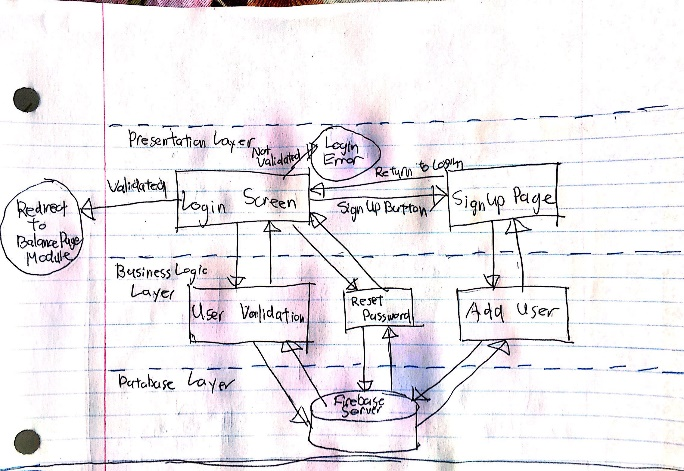 Presentation Layer
Not
Validated
Login
Error
Return to Login
Validated
Login Screen
Sign Up Button
Sign Up Page
Redirect
to
Balance Page
Module
Business Logic
Layer
User Validation
Reset
Password
Add User
Database Layer
Firebase
Server